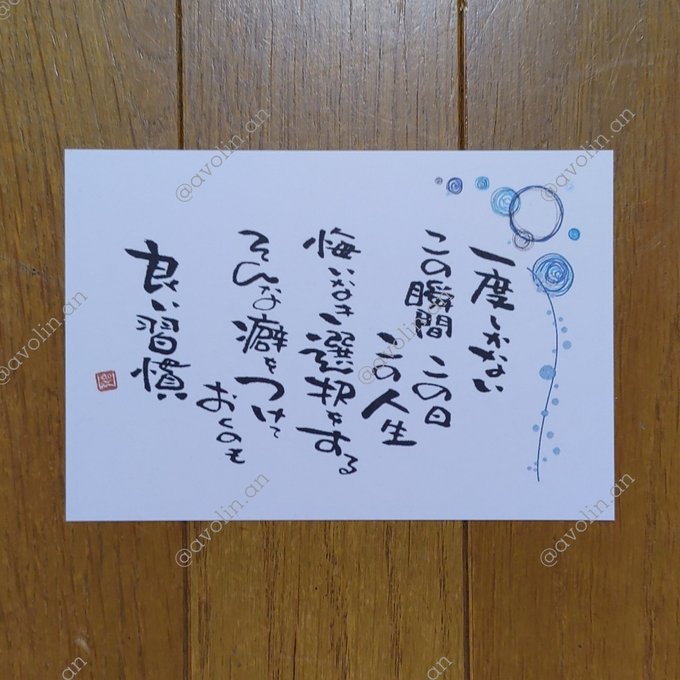 一度しかない
この瞬間 この日
この人生
悔いなき選択をする
そんな癖をつけて
おくのも
良い習慣
@avolin.an
@avolin.an
@avolin.an
@avolin.an
@avolin.an
@avolin.an
@avolin.an
@avolin.an